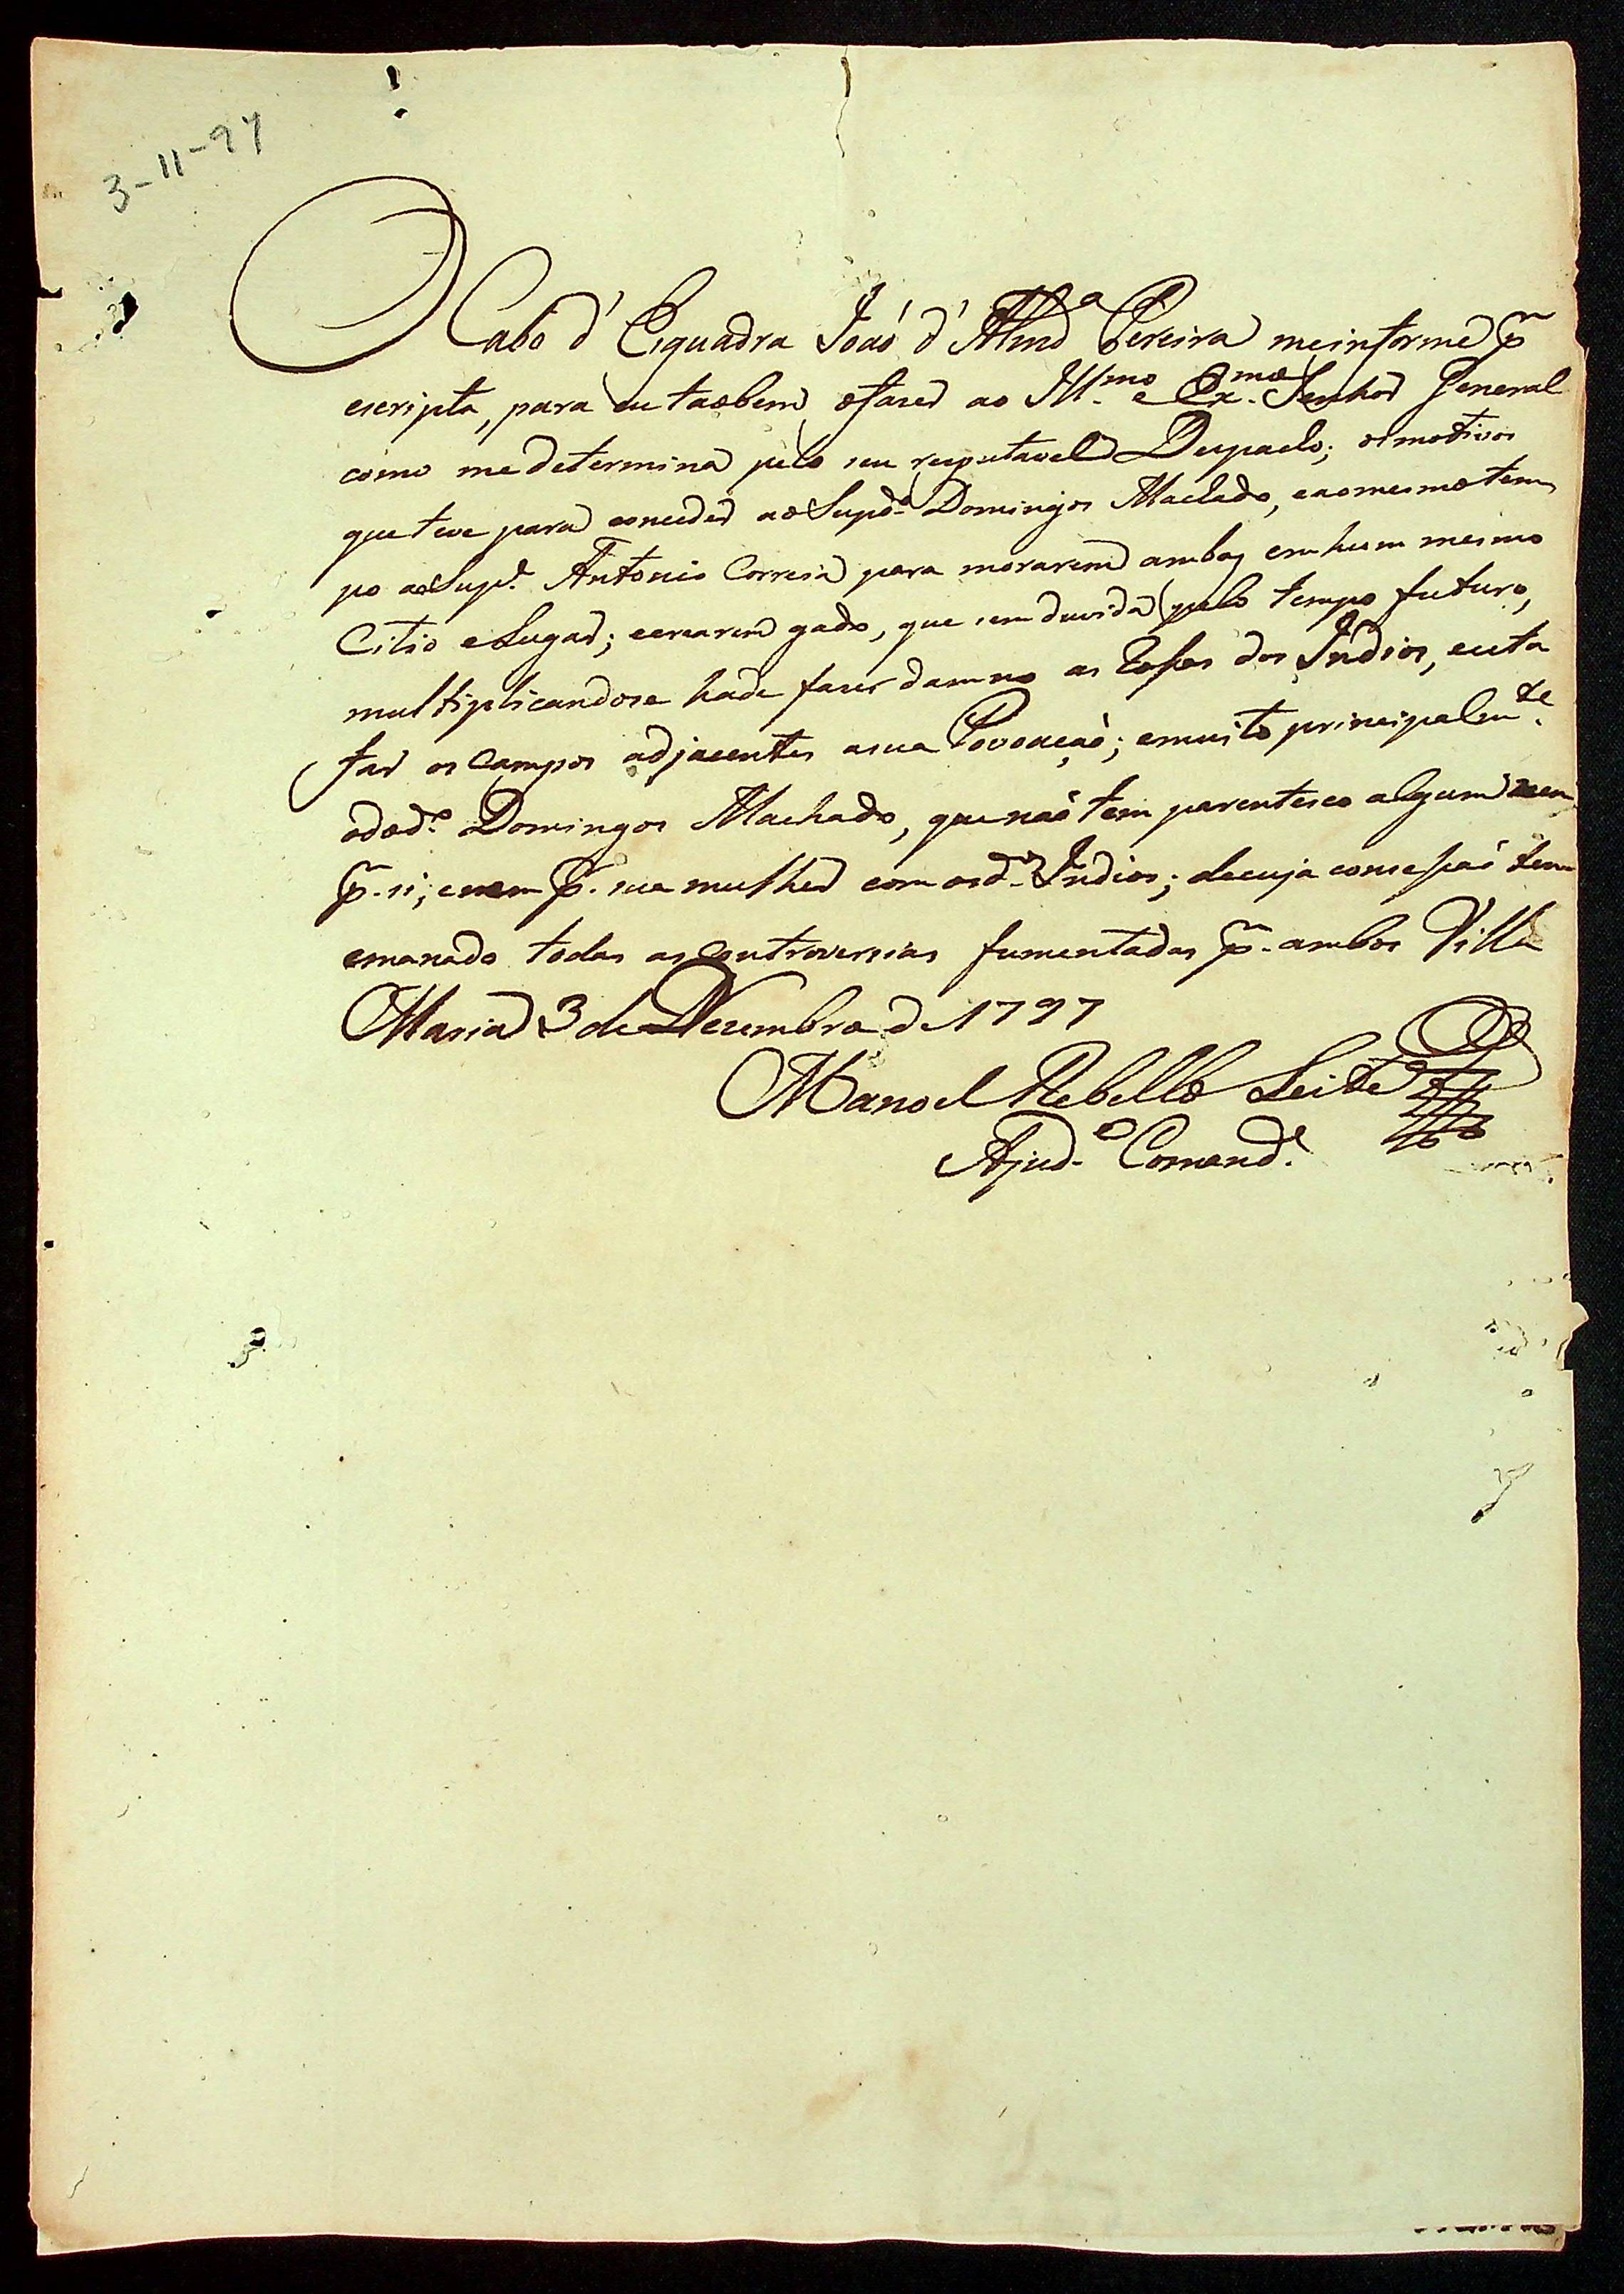 3-11-97
O Cabo d' Esquadra Joaó d' Almd.ª Pereira me informe p.r
escripta, para eu taobem o faser ao Ill.mo e Ex.mo Senhor General
como me determina pelo seu respeitavel Despacho; os motivos
que teve para conceder ao Sup.do Domingos Machado, e ao mesmo tem
po ao Sup.e Antonio Correia para morarem ambos em hum mesmo
Citio e Lugar; e crearem gado, que sem duvida pelo tempo futuro,
multiplicandose hade faser damno as Rossas dos Indios, e infes
tar os Campos adjacentes a sua Povoaçaó; e muito principalm.te
o do d.º Domingos Machado, que naó tem parentesco algum nem
p.r si, e nem p.r sua mulher com os d.os Indios; de cuja concessaó tem
emanado todas as controversias fumentadas p.r ambos Villa
Maria 3 de Dezembro de 1797
Manoel Rebello Leite
Ajud.e Comand.e